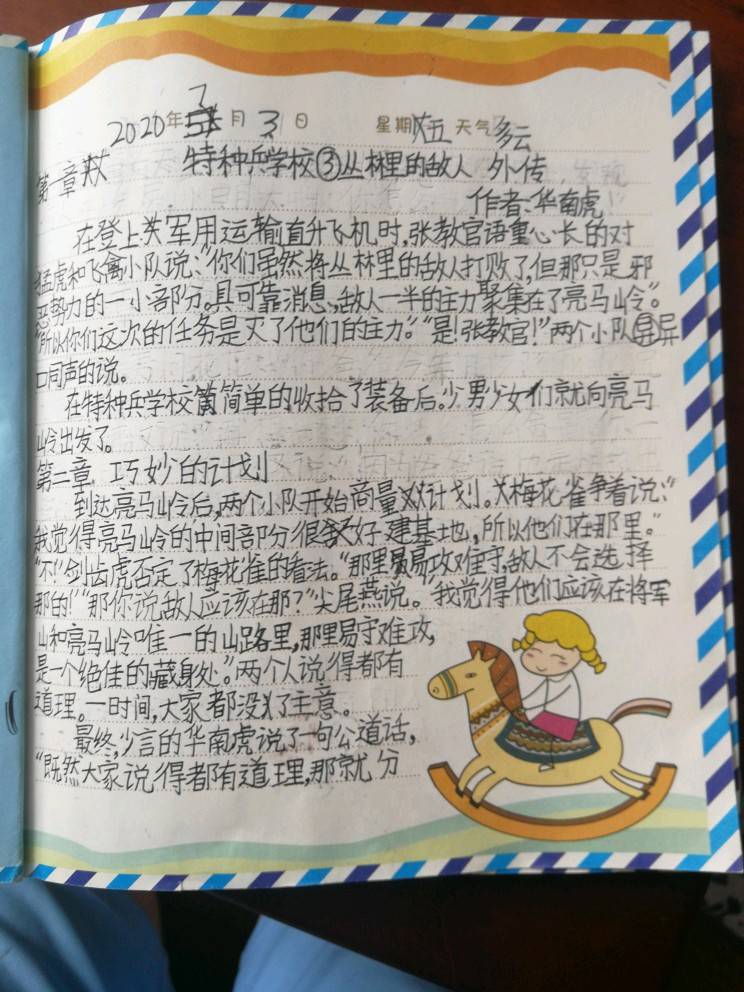 2020年7月3日 星期五 天气多云
第一章 特种兵学校③丛林里的敌人 外传
作者:华南虎
在登上军用运输直升飞机时,张教官语重心长的对
猛虎和飞禽小队说:“你们虽然将丛林里的敌人打败了,但那只是邪
恶势力的一小部分。具可靠消息,敌人一半的主力聚集在了亮马岭。”
“所以你们这次的任务是灭了他们的主力。”“是!张教官!”两个小队异
口同声的说。
在特种兵学校简单的收拾了装备后。少男少女们就向亮马
岭出发了。
第二章 巧妙的计划
到达亮马岭后,两个小队开始商量计划。梅花雀争着说:“
我觉得亮马岭的中间部分很好建基地,所以他们在那里。”
“不!”剑齿虎否定了梅花雀的看法。“那里易攻难守,敌人不会选择
那的!”“那你说敌人应该在那?”尖尾燕说。“我觉得他们应该在将军
山和亮马岭唯一的山路里,那里易守难攻,
是一个绝佳的藏身处。”两个人说得都有
道理。一时间,大家都没了主意。
最终,少言的华南虎说了一句公道话,
“既然大家说得都有道理,那就分